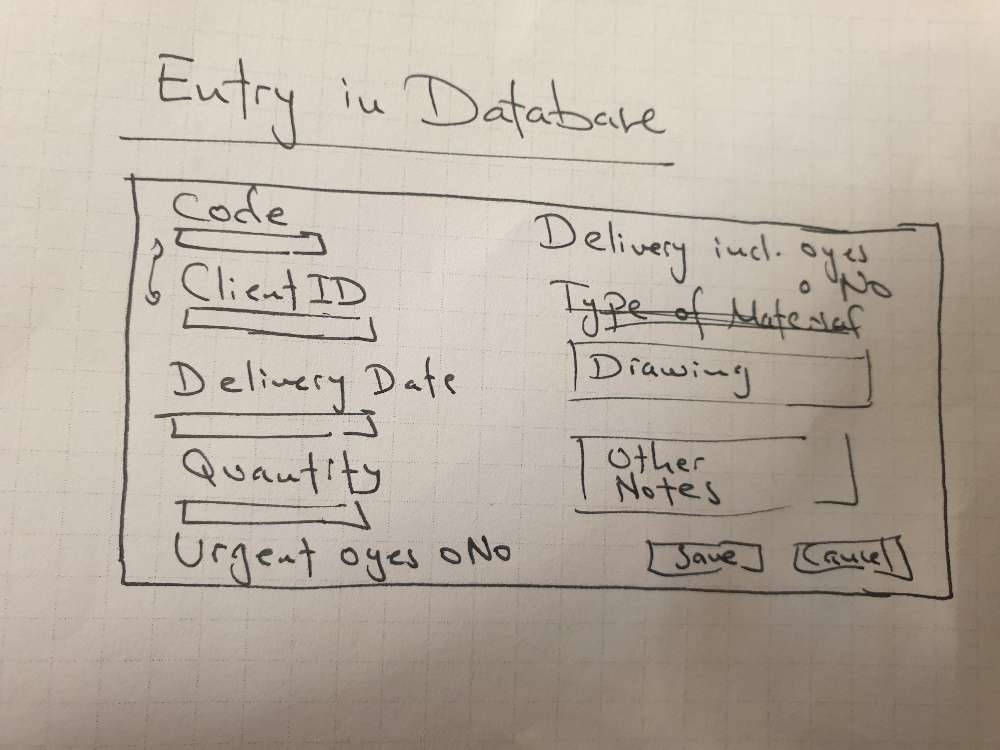 Entry in Database
Code
Client ID
Delivery Date
Quantity
Urgent o yes o No
Delivery incl. o yes
o No
Type of Material
Drawing
Other
Notes
Save
Cancel